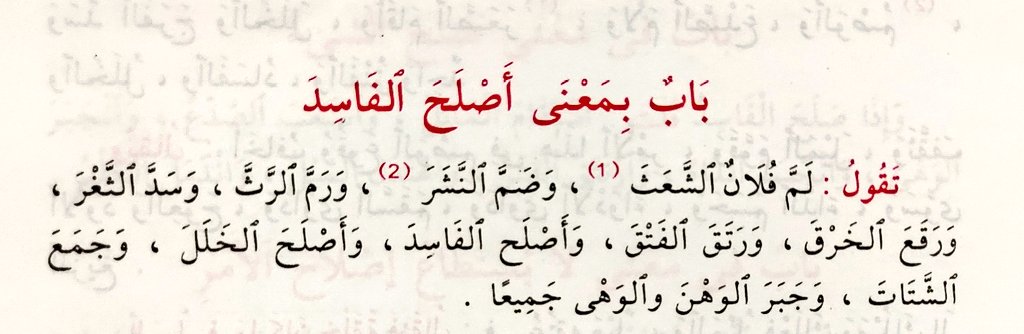 بَابٌ بِمَعْنَى أَصْلَحَ ٱلفَاسِدَ
تَقُولُ : لَمَّ فُلَانٌ ٱلشَّعَثَ (1) ، وَضَمَّ ٱلنَّشَرَ (2) ، وَرَمَّ ٱلرَّثَّ ، وَسَدَّ ٱلثَّغْرَ ،
وَرَقَعَ ٱلخَرْقَ ، وَرَتَقَ ٱلفَتْقَ ، وَأَصْلَحَ ٱلفَاسِدَ ، وَأَصْلَحَ ٱلخَلَلَ ، وَجَمَعَ
ٱلشَّتَاتَ ، وَجَبَرَ ٱلوَهْنَ وٱلوَهْى جَمِيعًا .